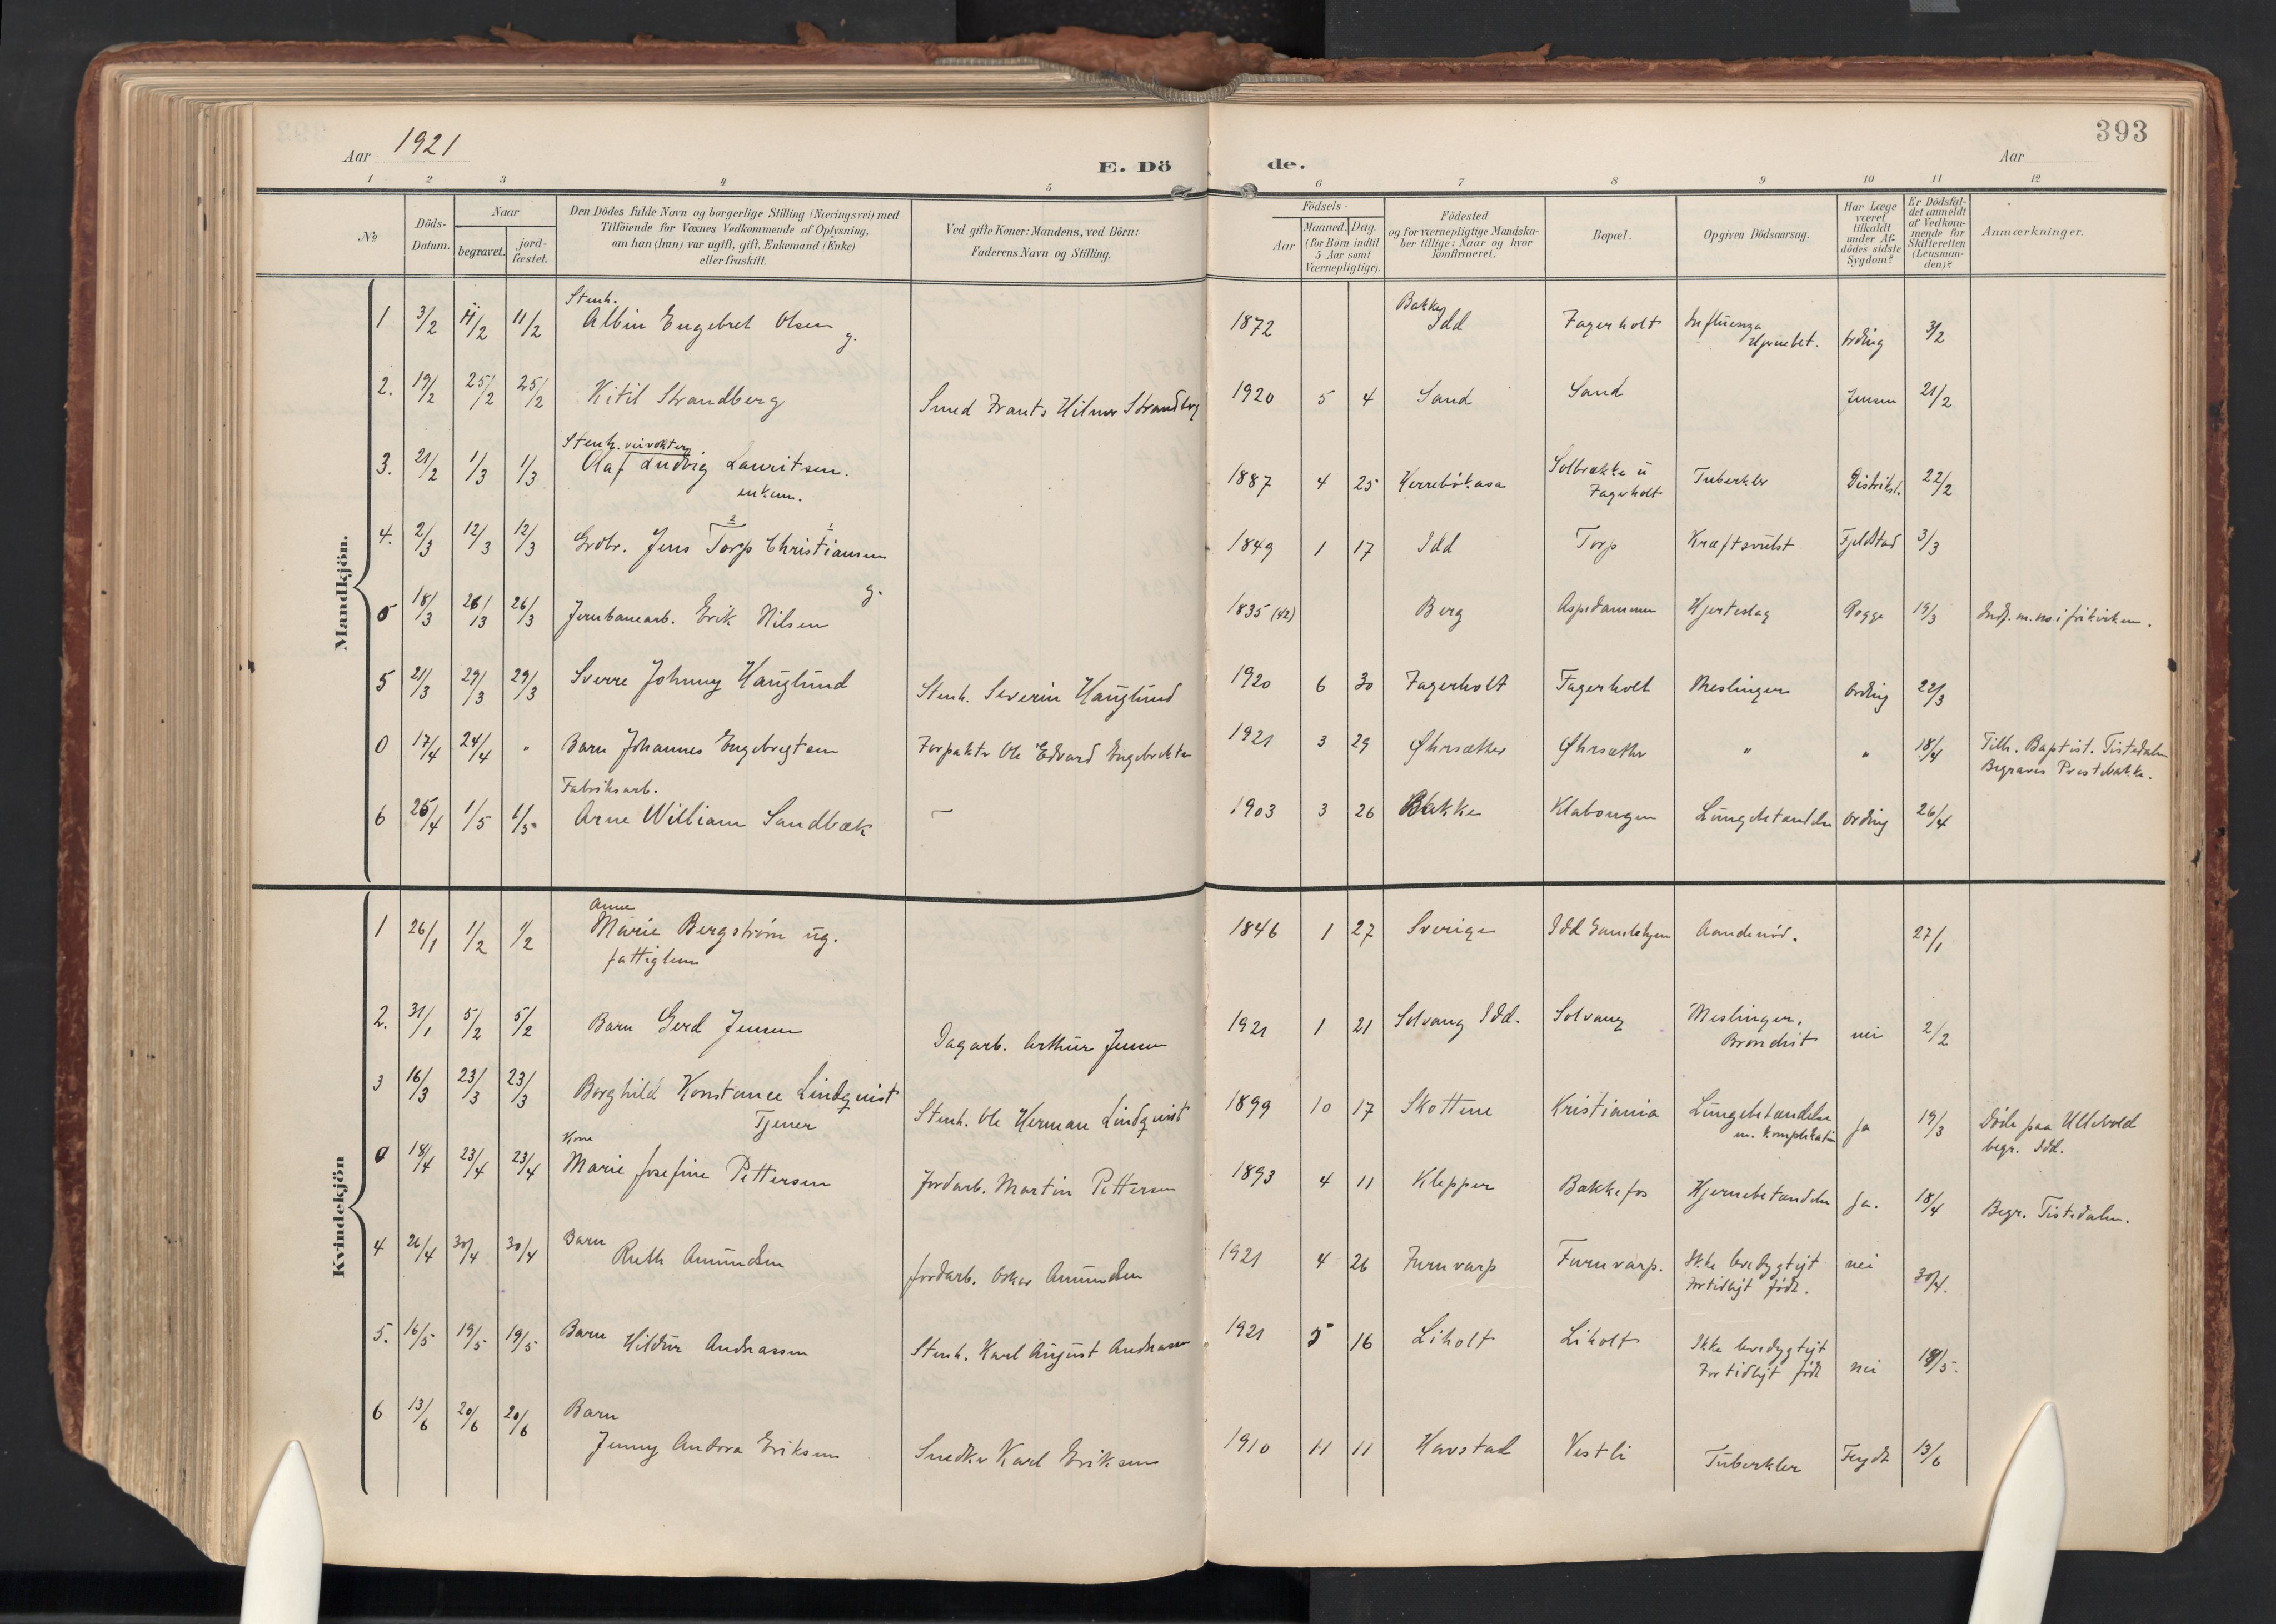 393
Aar 1921
E. Dö de.
Aar
1 2 3 4 5 6 7 8 9 10 11 12
No
Döds-Datum.
Naar
begravet.
jord-fæstet.
Den Dödes fulde Navn og borgerlige Stilling (Næringsvei) med
Tilföiende for Voxnes Vedkommende af Oplysning,
om han (hun) var ugift, gift, Enkemand (Enke)
eller fraskilt.
Ved gifte Koner: Mandens, ved Börn:
Faderens Navn og Stilling.
Födsels-
Aar
Maaned. Dag.
(for Börn indtil
5 Aar samt
Værnepligtige).
Födested
og for værnepligtige Mandska-
ber tillige: Naar og hvor
konfirmeret.
Bopæl.
Opgiven Dödsaarsag.
Har Læge
været
tilkaldt
under Af-
dödes sidste
Sygdom?
Er Dödsfal-
det anmeldt
af Vedkom-
mende for
Skifteretten
(Lensman-
den)?
Anmærkninger.
Mandkjön.
Stenh.
1 3/2 11/2 11/2 Albin Engebret Olsen g. 1872 Bakke Idd Fagerholt Influenza Hjernebet. Ording 3/2
2. 19/2 25/2 25/2 Kitil Strandberg Smed Frants Hilmer Strandberg 1920 5 4 Sand Sand Jensen 21/2
Stenh. veivokter
3. 21/2 1/3 1/3 Olaf Ludvig Lauritsen. enkem. 1887 4 25 Solbrække u Fagerholt Tuberkler Distriktsl. 22/2
4. 2/3 12/3 12/3 Grdbr. Jens Torp Christiansen g. 1849 1 17 Idd Torp Kræftsvulst Fjeldstad 3/3
0 18/3 26/3 26/3 Jernbanearb. Erik Nilsen 1835 (42) Berg Aspedammen Hjerteslag Rogge 19/3 Indf. m. no i frikirken.
5 21/3 29/3 29/3 Sverre Johnny Hauglund Stenh. Severin Hauglund 1920 6 30 Fagerholt Fagerholt Meslinger Ording 22/3
0 17/4 24/4 " Barn Johannes Engebregtsen Forpakter Ole Edvard Engebrektsen 1921 3 29 Øhrsæther Øhrsæther " " 18/4 Tilh. Baptist. Tistedalen
Begraves Prestebakke.
Fabriksarb.
6 25/4 1/5 1/5 Arne William Sandbæk — 1903 3 26 Bakke Klabongen Lungebetændelse Ording 26/4
Kvindekjön
Anne
1 26/1 1/2 1/2 Marie Bergstrøm ug. 1846 1 27 Sverige Idd Gamlehjem Aandenød. 27/1
fattiglem
2. 31/1 5/2 5/2 Barn Gerd Jensen Dagarb. Arthur Jensen 1921 1 21 Solvang Idd. Solvang Meslinger, Bronchit nei 2/2
3 16/3 23/3 23/3 Borghild Konstance Lindqvist Tjener Stenh. Ole Herman Lindqvist 1899 10 17 Skottene Kristiania Lungebetændelse m. komplikation ja 19/3 Døde paa Ullevold
begr. Idd.
Kone
0 18/4 23/4 23/4 Marie Josefine Pettersen Jordarb. Martin Pettersen 1893 4 11 Klepper Bakkefos Hjernebetændelse Ja. 18/4 Begr. Tistedalen.
4 26/4 30/4 30/4 Barn Ruth Amundsen Jordarb. Oskar Amundsen 1921 4 26 Furuvarp Furuvarp. Ikke levedygtigt
Fortidligt født. nei 30/4.
5. 16/5 19/5 19/5 Barn Hildur Andreassen Stenh. Karl August Andreassen 1921 5 16 Liholt Liholt Ikke levedygtigt
Fortidligt født nei 19/5.
6 13/6 20/6 20/6 Barn
Jenny Andora Eriksen Snedker Karl Eriksen 1910 11 11 Havstad Vestli Tuberkler Frydt 13/6